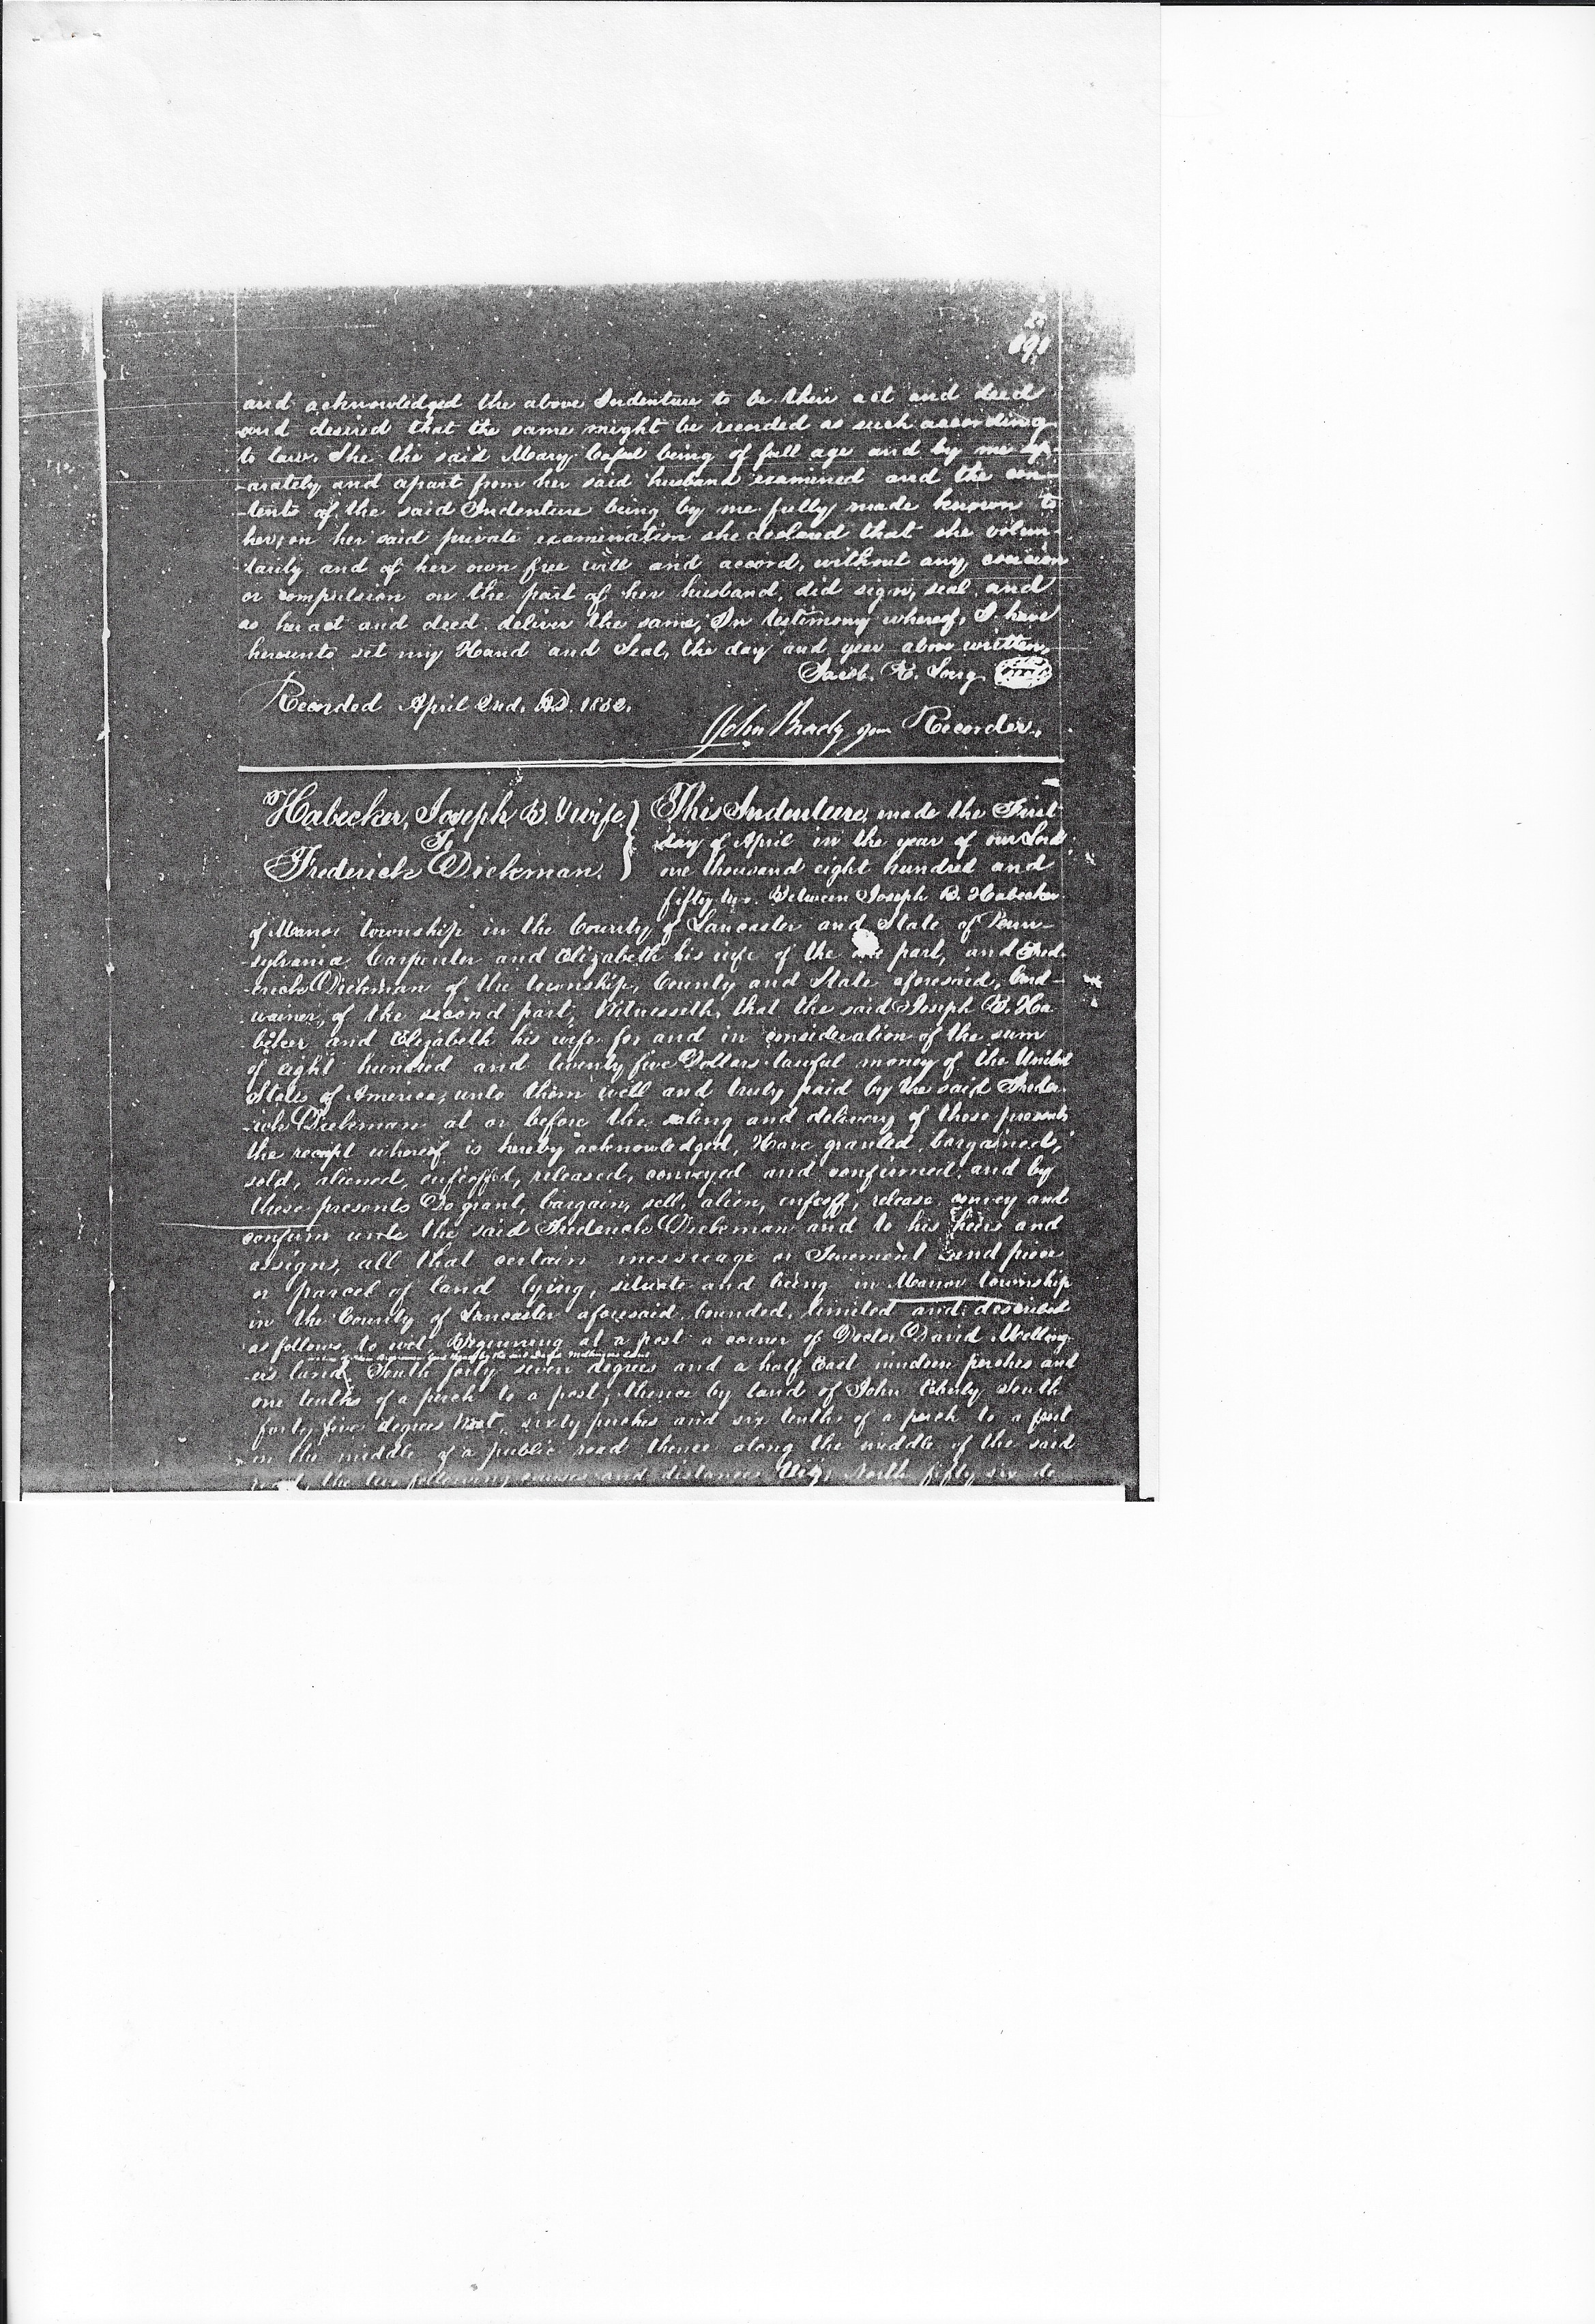 691
and acknowledged the above Indenture to be their act and deed
and desired that the same might be recorded as such according
to law. She the said Mary being of full age and by me sep-
-arately and apart from her said husband examined and the con-
-tents of the said Indenture being by me fully made known to
her, on her said private examination she declared that she volun-
-tarily and of her own free will and accord, without any coercion
or compulsion on the part of her husband, did sign, seal and
as her act and deed deliver the same, In testimony whereof, I have
hereunto set my Hand and Seal, the day and year above written,
Jacob. K. Long Seal
Recorded April 2nd. AD. 1852.
John Brady Recorder.
Habecker, Joseph B. & wife
To
Frederick Dickman.
This Indenture, made the First
day of April in the year of our Lord
one thousand eight hundred and
fifty two. Between Joseph B. Habecker
of Manor township in the County of Lancaster and State of Penn-
-sylvania Carpenter and Elizabeth his wife of the one part, and Fred-
-erick Dickman of the township, County and State aforesaid, Cord-
-wainer, of the second part, Witnesseth, that the said Joseph B. Ha-
-becker and Elizabeth his wife for and in consideration of the sum
of eight hundred and twenty five Dollars lawful money of the United
States of America, unto them well and truly paid by the said Frede-
-rick Dickman at or before the sealing and delivery of these presents
the receipt whereof is hereby acknowledged, Have granted, bargained,
sold, aliened, enfeoffed, released, conveyed and confirmed and by
these presents Do grant, bargain, sell, alien, enfeoff, release convey and
confirm unto the said Frederick Dickman and to his heirs and
assigns, all that certain messuage or Tenement and piece
or parcel of land lying, situate and being in Manor township
in the County of Lancaster aforesaid, bounded, limited and described
as follows, to wit Beginning at a post a corner of Doctor David Melling-
-ers land, South forty seven degrees and a half East nineteen perches and
one tenths of a perch to a post, thence by land of John Eberly South
forty five degrees West, sixty perches and six tenths of a perch to a post
in the middle of a public road thence along the middle of the said
road, the two following courses and distances Viz, North fifty six de